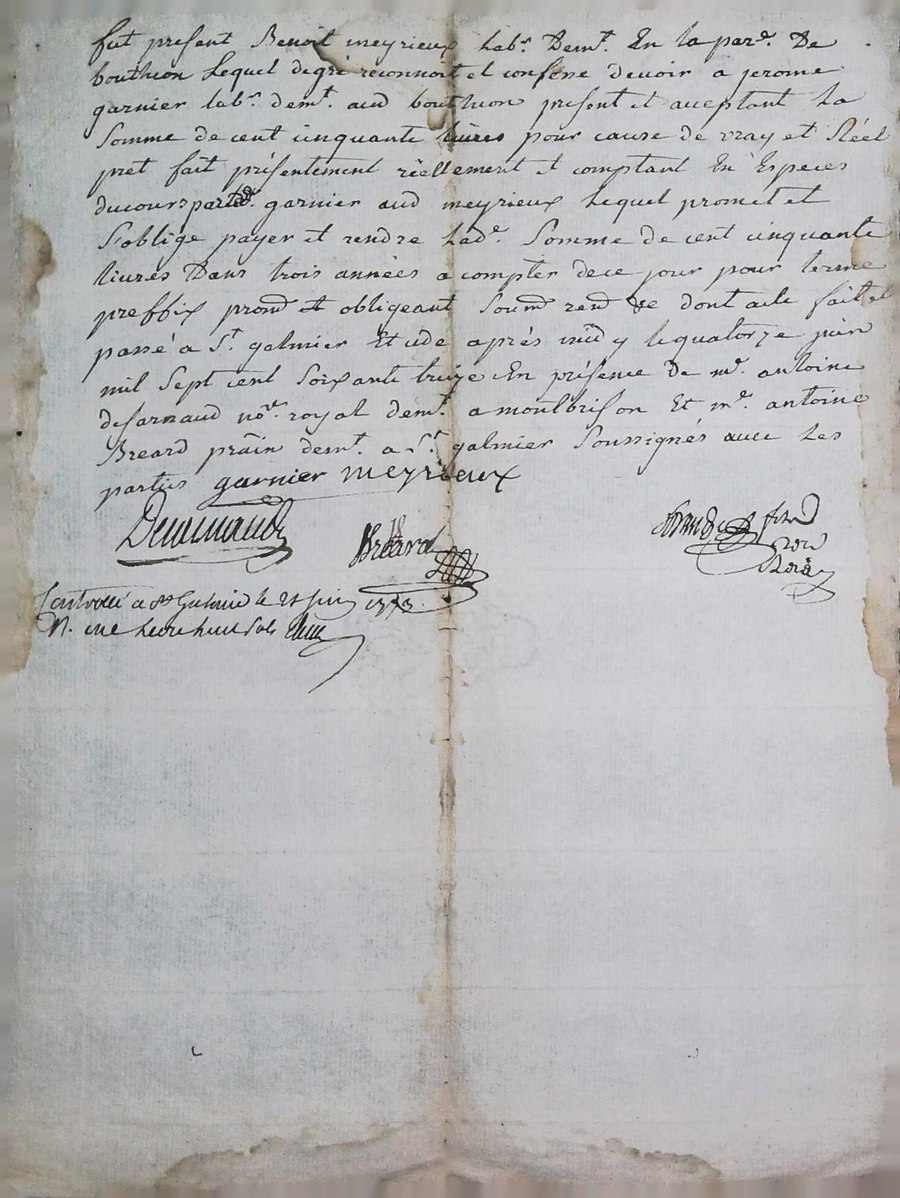 fut present Benoit meyrieux Labr. Demt. En la pare. De
bouthion Lequel de gré reconnoit et confesse devoir a jerome
garnier labr. demt. aud bouthion present et aceptant La
Somme de cent cinquante livres pour cause de vray et Réel
pret fait présentement réellement et comptant En Especes
du cours par led. garnier aud meyrieux Lequel promet et
s'oblige payer et rendre Lade. Somme de cent cinquante
livres Dans trois années a compter de ce jour pour terme
preffix promt et obligeant Soumt rent &c dont acte fait et
passé a St. galmier Etude après midy le quatorze juin
mil Sept cent Soixante treize En présence De me. antoine
desarnaud nore. royal demt. a montbrison Et me. antoine
Breard práin demt. a St. galmier Soussignés avec Les
parties garnier meyrieux
Breard
Controllé a St Galmier le 21 juin 1773.
R. une livre huit sols